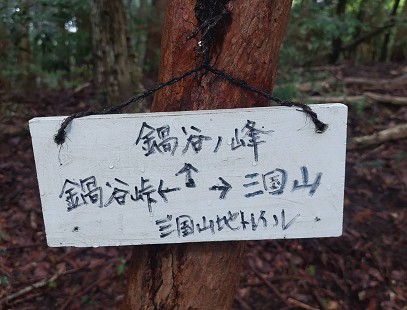 鍋谷ノ峰
鍋谷峠← ↑ →三国山
三国山地トレイル